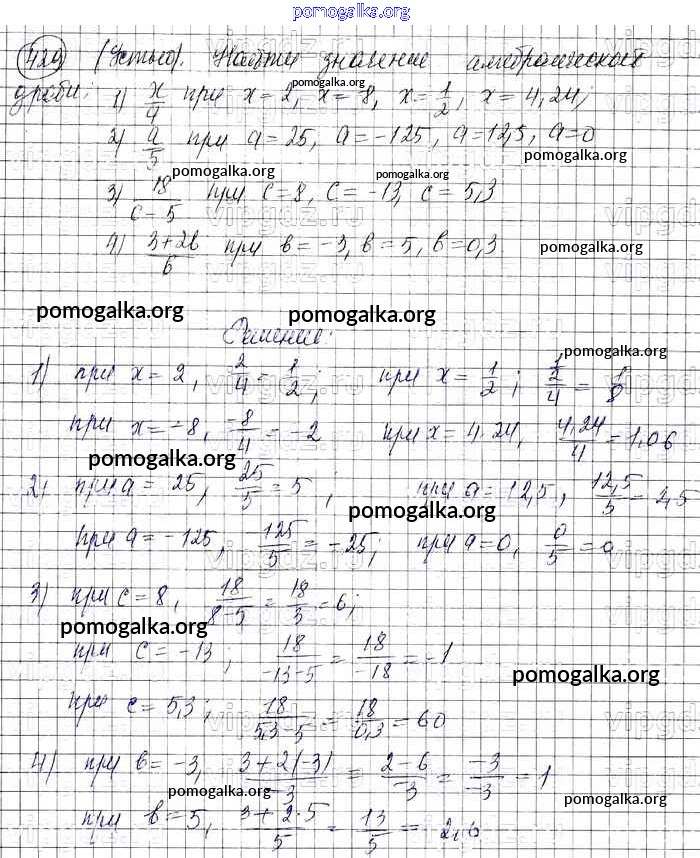 pomogalka.org
429 (Устно). Найти значение алгебраической
дроби: 1) x/4 при x = 2, x = -8, x = 1/2, x = 4,24;
2) a/5 при a = 25, a = -125, a = 12,5, a = 0
pomogalka.org pomogalka.org pomogalka.org
3) 18/(c - 5) при c = 8, c = -13, c = 5,3
4) (3+2b)/b при b = -3, b = 5, b = 0,3
pomogalka.org pomogalka.org
pomogalka.org pomogalka.org
Решение:
pomogalka.org
1) при x = 2, 2/4 = 1/2; при x = 1/2; (1/2)/4 = 1/8
при x = -8, -8/4 = -2 при x = 4,24, 4,24/4 = 1,06
pomogalka.org
2) при a = 25, 25/5 = 5; при a = 12,5, 12,5/5 = 2,5
pomogalka.org
при a = -125, -125/5 = -25; при a = 0, 0/5 = 0
3) при c = 8, 18/(8-5) = 18/3 = 6;
pomogalka.org
при c = -13; 18/(-13-5) = 18/-18 = -1
pomogalka.org
при c = 5,3; 18/(5,3-5) = 18/0,3 = 60
4) при b = -3, (3+2(-3))/-3 = (2-6)/-3 = -3/-3 = 1
pomogalka.org pomogalka.org pomogalka.org
при b = 5, (3+2·5)/5 = 13/5 = 2,6